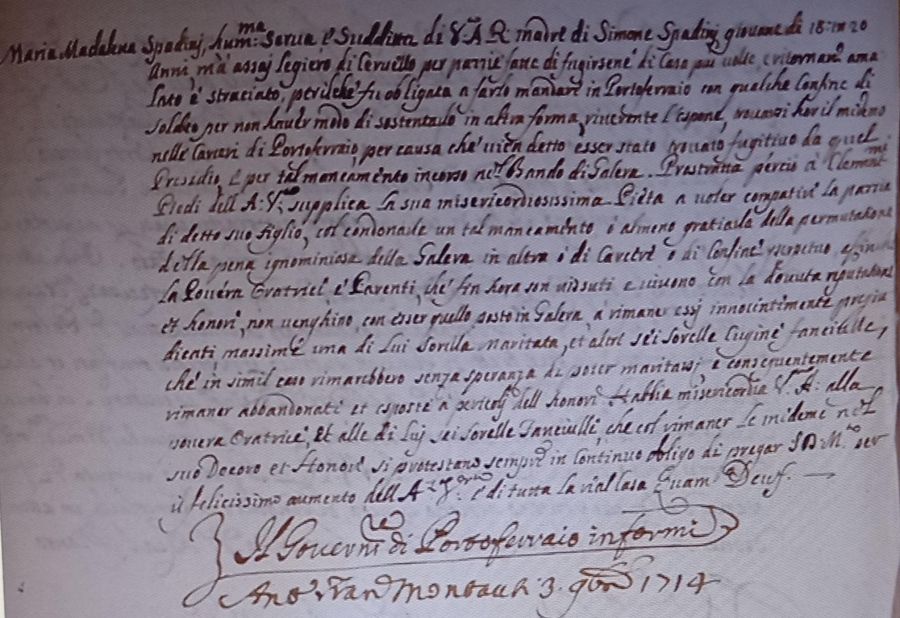 Maria Madalena Spadinj, hum:ma Serua e Suddita di V.A.R. madre di Simone Spadinj giouane di 18: in 20
Anni, mà assaj legiero di Ceruello per pazzie fatte di fugirsene di Casa più uolte, e ritornar ama
lato è straciato, perilche fu obligata a farlo mandare in Portoferraio con qualche Confine di
soldato per non hauer modo di sostentarlo in altra forma, riuerente l'espone, trouarsi hor il medemo
nelle Carceri di Portoferraio, per causa che uien detto esser stato trouato fugitiuo da quel
Presidio, e per tal mancamento incorso nel Bando di Galera. Prostratta perciò à Clement.mi
Piedi dell A: V: supplica la sua misericordiosissima Pietà a uoler compatire la pazzia
di detto suo figlio, col condonarle un tal mancamento, ò almeno gratiarla della permutatione
della pena ignominiosa della Galera in altra ò di Carcere ò di Confine perpetuo, affinche
la Pouera Oratrice e Parenti, che fin hora son uissuti e uiuono con la douuta reputatione
et honore, non uenghino, con esser quello posto in Galera, à rimaner essj innocentemente pregiu
dicati massime una di Lui Sorella Maritata, et altre sei Sorelle Cugine fanciulle,
che in simil caso rimarebbero senza speranza di poter maritarsi e consequentemente
rimaner abbandonate et esposte à pericolj dell honore. Habbia misericordia V.A: alla
pouera Oratrice, et alle di Luj sei Sorelle Fanciulle, che col rimaner le medeme nel
suo Decoro et Honore si protestano sempre in Continuo obligo di pregar S.D.M. per
il felicissimo aumento dell A. V. e di tutta la Casa Quam Deus.
Il Gouern.re di Portoferraio informi
Ant. Fran Montauti 3. 9bre 1714